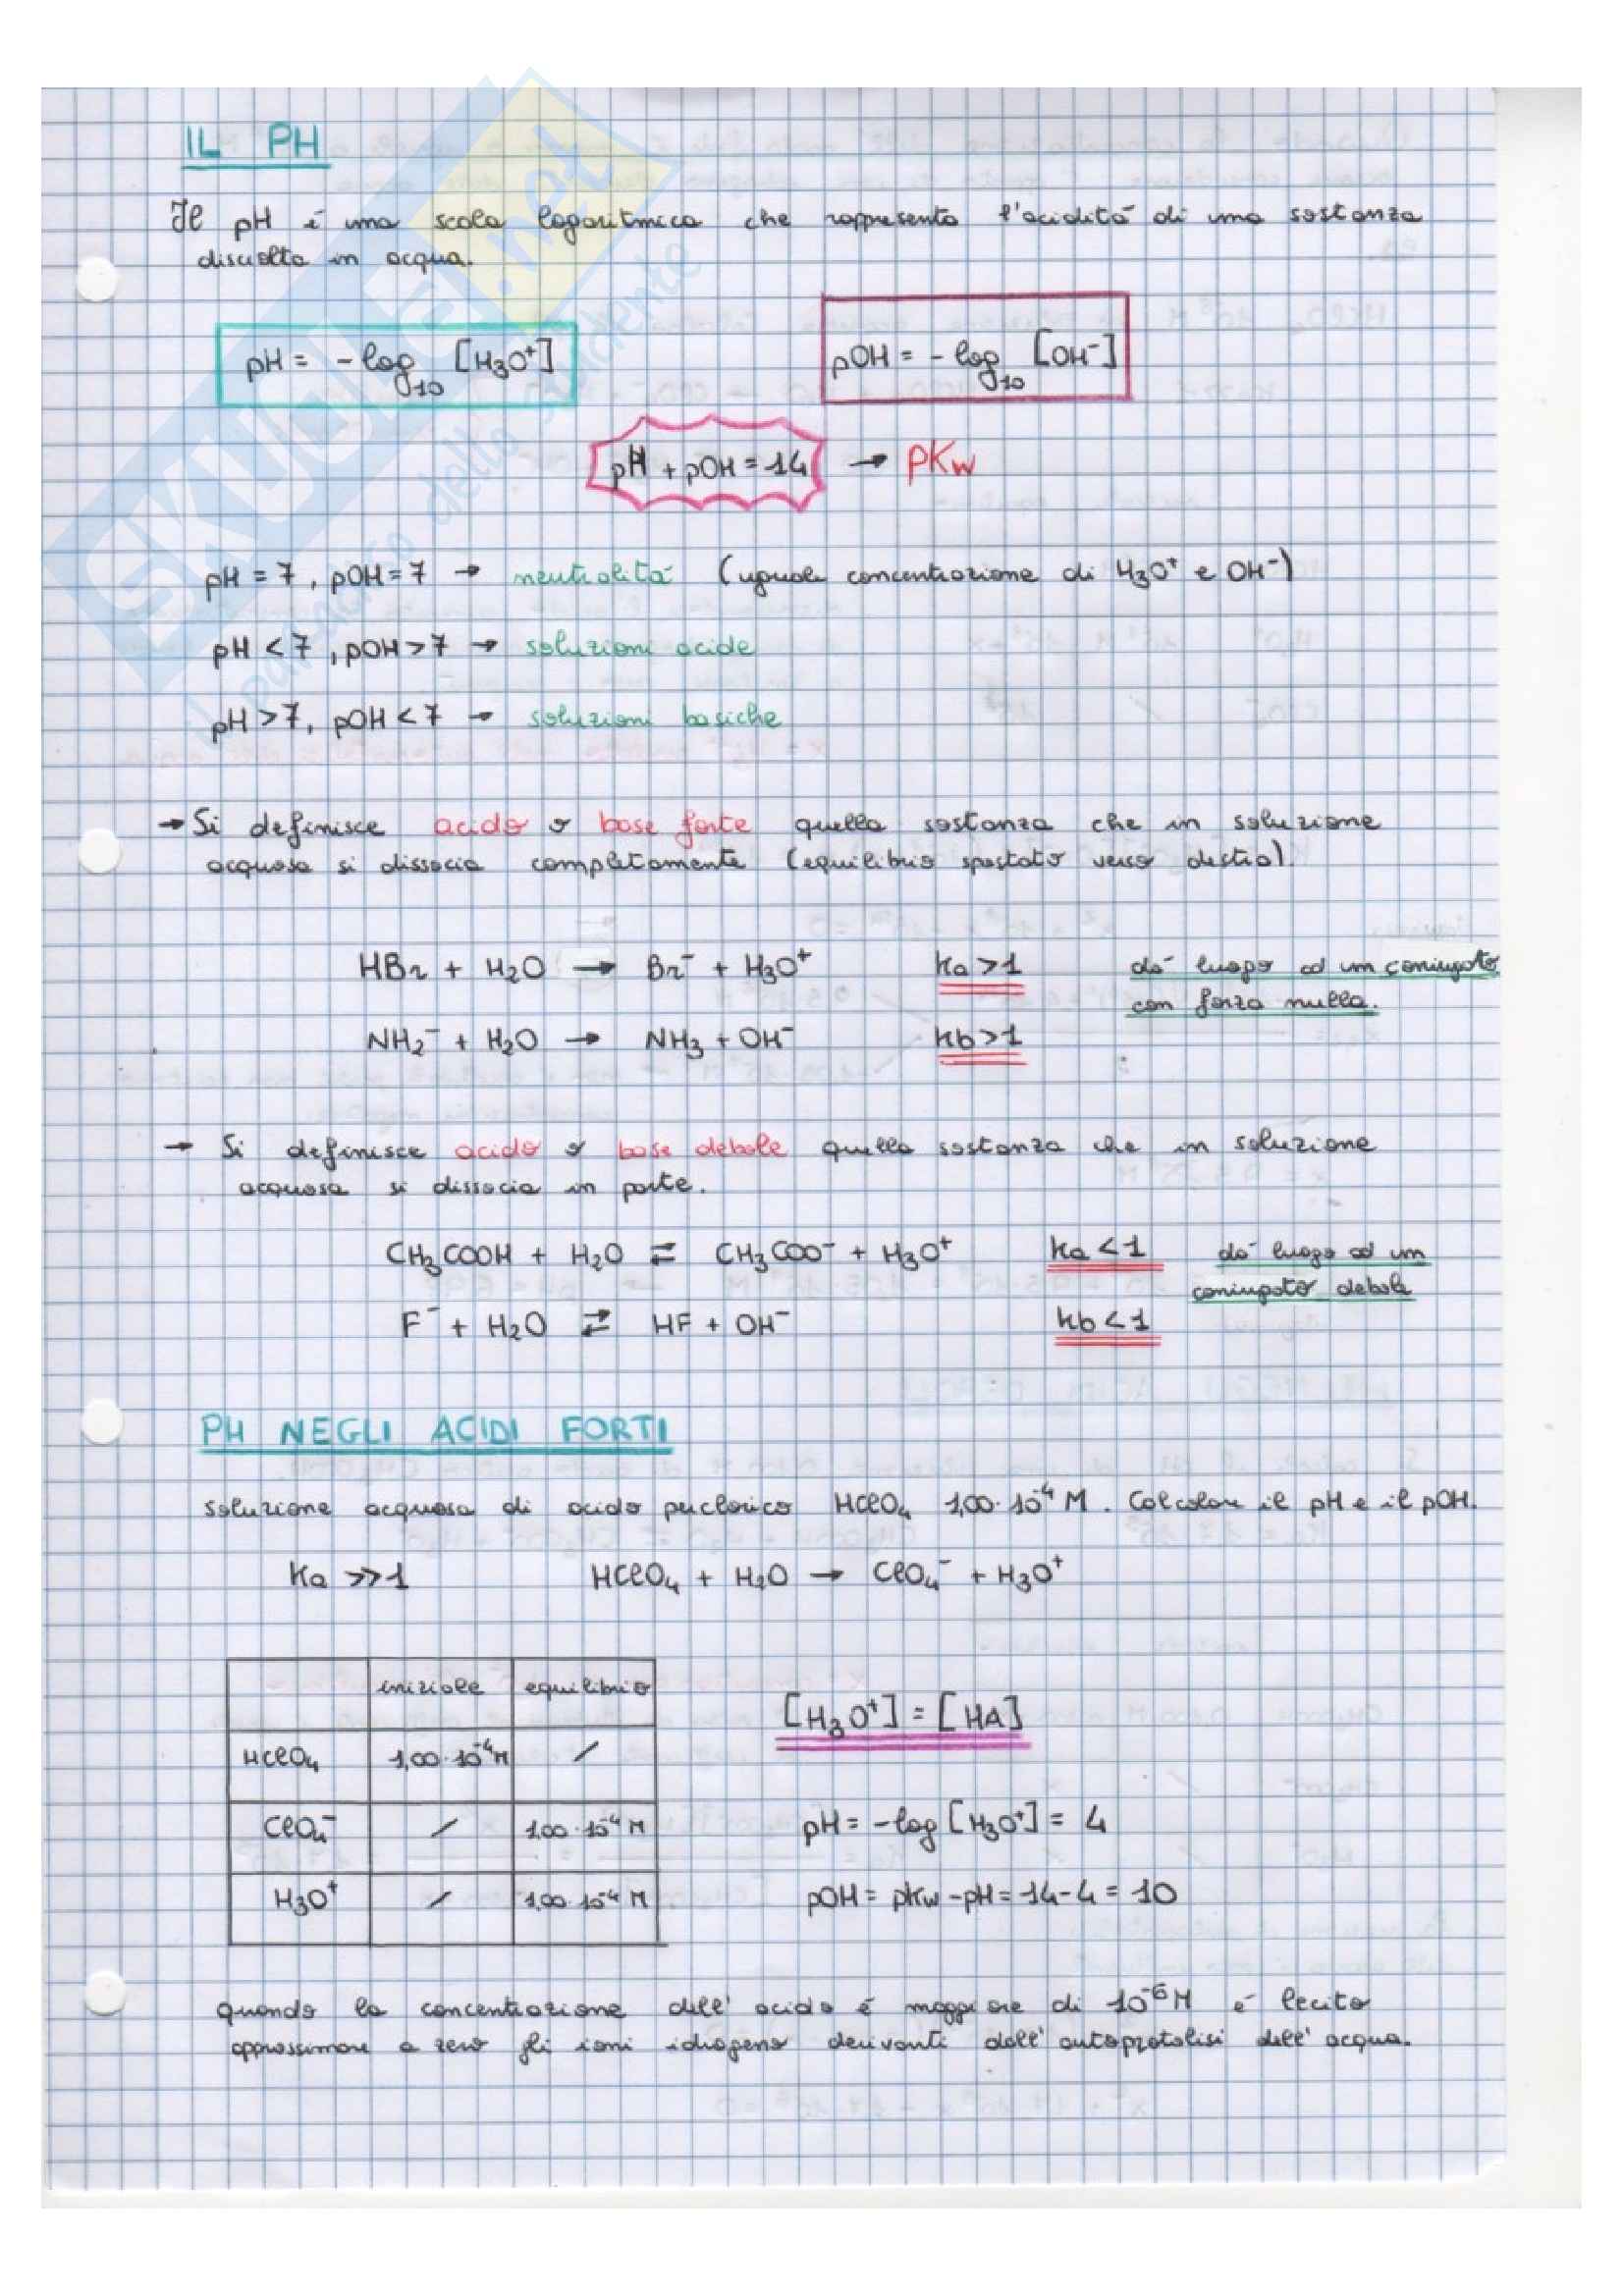 IL PH
Il pH è una scala logaritmica che rappresenta l'acidità di una sostanza
disciolta in acqua.
pH = -log₁₀ [H₃O⁺]
pOH = -log₁₀ [OH⁻]
pH + pOH = 14 → pKw
pH = 7, pOH = 7 → neutralità (uguale concentrazione di H₃O⁺ e OH⁻)
pH < 7, pOH > 7 → soluzioni acide
pH > 7, pOH < 7 → soluzioni basiche
→ Si definisce acido o base forte quella sostanza che in soluzione
acquosa si dissocia completamente (equilibrio spostato verso destra).
HBr + H₂O → Br⁻ + H₃O⁺ Ka > 1 dà luogo ad un coniugato
con forza nulla.
NH₂⁻ + H₂O → NH₃ + OH⁻ Kb > 1
→ Si definisce acido o base debole quella sostanza che in soluzione
acquosa si dissocia in parte.
CH₃COOH + H₂O ⇄ CH₃COO⁻ + H₃O⁺ Ka < 1 dà luogo ad un
coniugato debole
F⁻ + H₂O ⇄ HF + OH⁻ Kb < 1
PH NEGLI ACIDI FORTI
soluzione acquosa di acido perclorico HClO₄ 1,00·10⁻⁴ M. Calcolare il pH e il pOH.
Ka >> 1 HClO₄ + H₂O → ClO₄⁻ + H₃O⁺
iniziale equilibrio
HClO₄ 1,00·10⁻⁴ M /
ClO₄⁻ / 1,00·10⁻⁴ M
H₃O⁺ / 1,00·10⁻⁴ M
[H₃O⁺] = [HA]
pH = -log [H₃O⁺] = 4
pOH = pKw - pH = 14 - 4 = 10
quando la concentrazione dell'acido è maggiore di 10⁻⁶ M è lecito
approssimare a zero gli ioni idrogeno derivanti dall'autoprotolisi dell'acqua.
SKUOLA.net
il paradiso dello studente